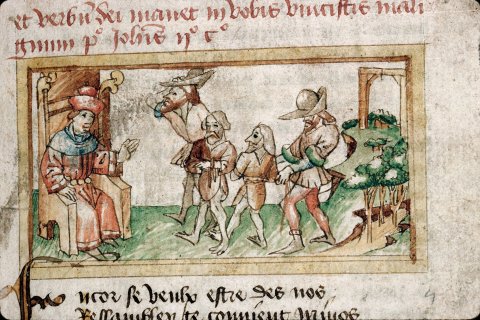 et verbum dei manet in vobis vincistis mali
gnum p° Joh̄is ij° c°
Ancor se veulx estre des nos
Ressambler te convient minos